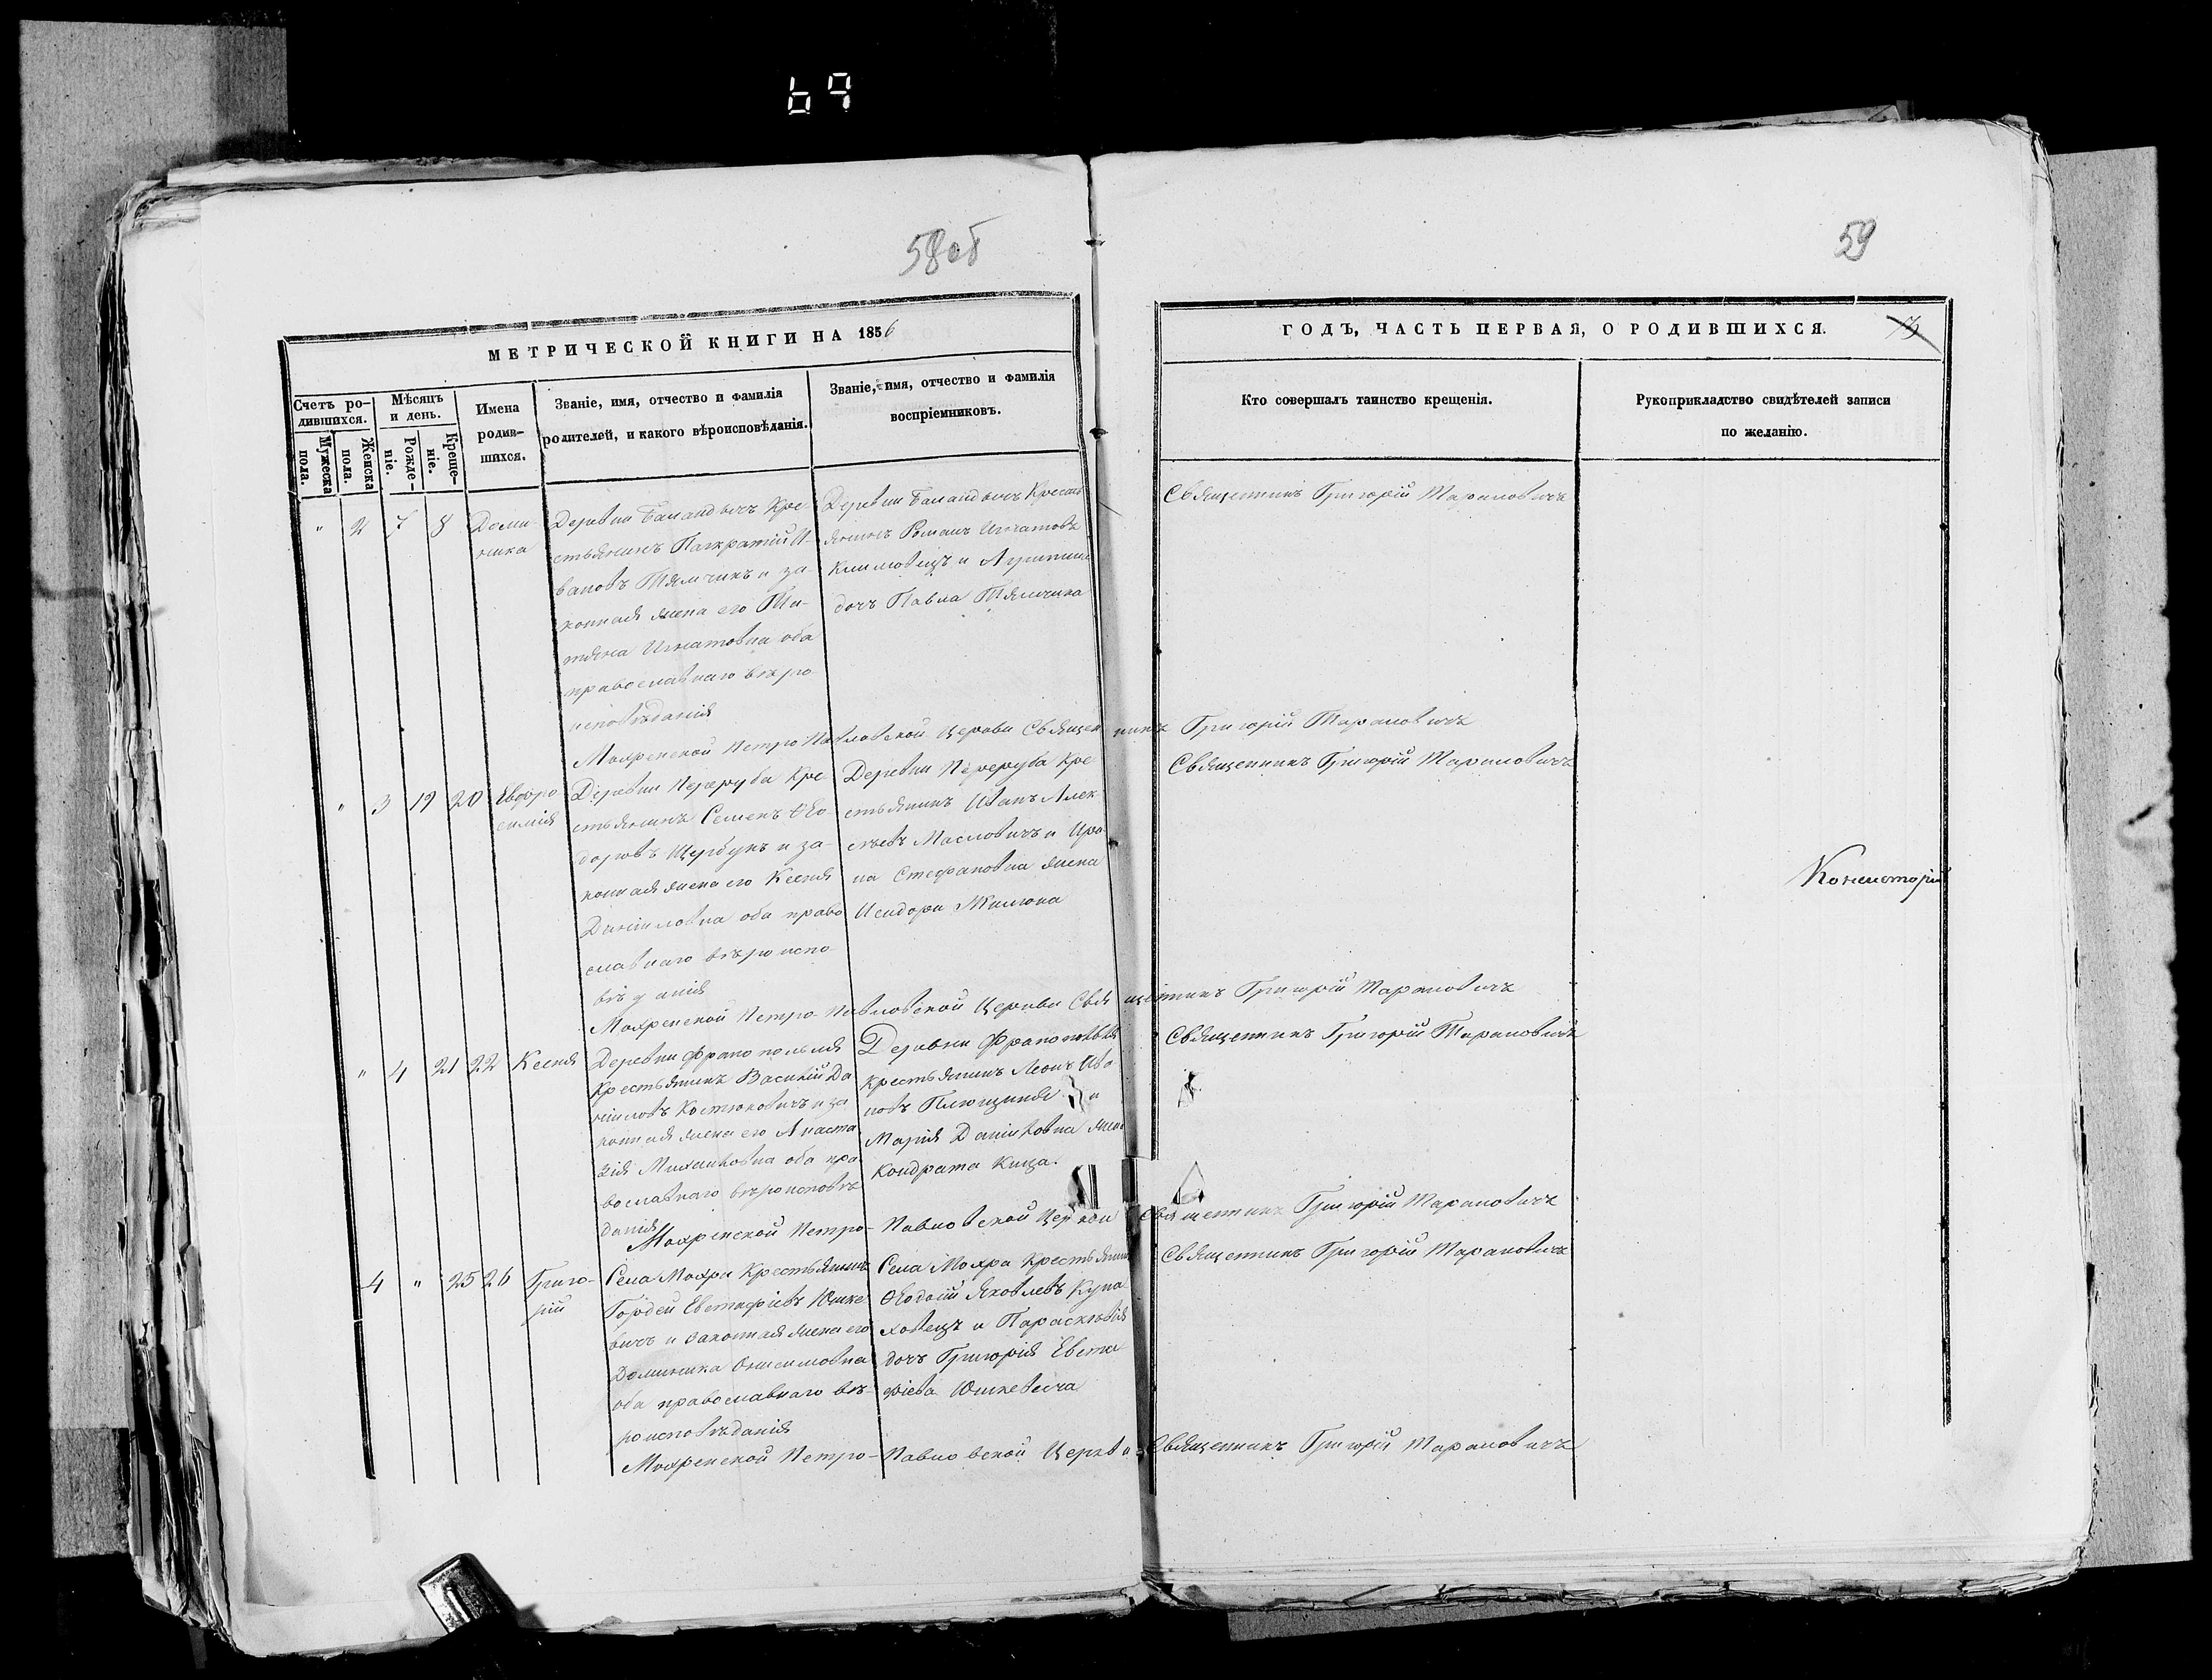 69
58 об
59
МЕТРИЧЕСКОЙ КНИГИ НА 1856
ГОДЪ, ЧАСТЬ ПЕРВАЯ, О РОДИВШИХСЯ.
3
Счетъ ро-
дившихся.
Мужеска
пола.
Женска
пола.
Мѣсяцъ
и день.
Рожде-
ніе.
Креще-
ніе.
Имена
родив-
шихся.
Званіе, имя, отчество и фамилія
родителей, и какого вѣроисповѣданія.
Званіе, имя, отчество и фамилія
воспріемниковъ.
Кто совершалъ таинство крещенія.
Рукоприкладство свидѣтелей записи
по желанію.
" 2 7 8
Доми-
ника
Деревни Баландичъ Кре-
стьянинъ Панкратій И-
вановъ Тямчикъ и за-
конная жена его Та-
тяна Игнатовна оба
православнаго вѣро-
исповѣданія
Деревни Баландичъ Кресть
янинъ Романъ Игнатовъ
Климовецъ и Агрипина
дочь Павла Тямчика
Священникъ Григорій Тарановичъ
Мохренской Петро Павловской Церкви Священникъ Григорій Тарановичъ
" 3 19 20
Евфро
синія
Деревни Переруба Кре
стьянинъ Семенъ Ѳео-
доровъ Щербукъ и за-
конная жена его Ксенія
Даніиловна оба право
славнаго вѣроиспо-
вѣданія
Деревни Переруба Кре
стьянинъ Иванъ Алек
сѣевъ Масловичъ и Ири
на Стефановна жена
Исидора
Священникъ Григорій Тарановичъ
Консисторіи
Мохренской Петро-Павловской Церкви Священникъ Григорій Тарановичъ
" 4 21 22
Ксенія
Деревни Франополья
Крестьянинъ Василій Да
ніиловъ Костюковичъ и за
конная жена его Анаста
зія Михаиловна оба пра
вославнаго вѣроисповѣ
данія
Деревни Франополья
крестьянинъ Леонъ Ива
новъ и
Марія Даниловна жена
Кондрата Кица.
Священникъ Григорій Тарановичъ
Мохренской Петро-Павловской Церкви Священникъ Григорій Тарановичъ
4 " 25 26
Григо-
рій
Села Мохра Крестьянинъ
Гордей Евстафіевъ Юшке
вичъ и законная жена его
Доминика Онисимовна
оба православнаго вѣ-
роисповѣданія
Села Мохра Крестьянинъ
Ѳеодосій Яковлевъ Купа
ховецъ и Параскевія
дочь Григорія Евста
фіева Юшкевича
Священникъ Григорій Тарановичъ
Мохренской Петро-Павловской Церкви Священникъ Григорій Тарановичъ